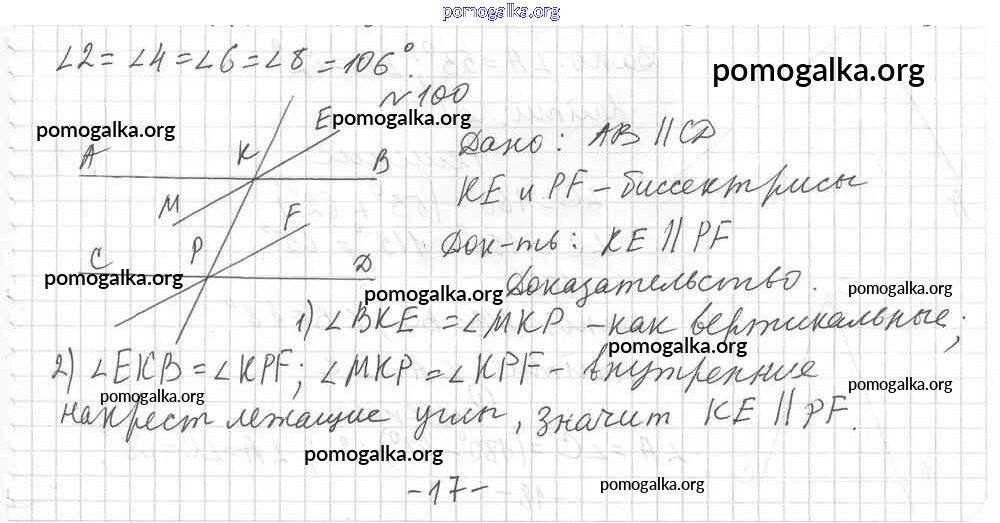 pomogalka.org
∠2 = ∠4 = ∠6 = ∠8 = 106°.
pomogalka.org
№100
pomogalka.org
pomogalka.org
E
A K B
Дано: AB || CD
M
KE и PF – биссектрисы
F
P
Док-ть: KE || PF
C D
pomogalka.org
pomogalka.org
Доказательство.
pomogalka.org
1) ∠BKE = ∠MKP – как вертикальные;
pomogalka.org
2) ∠EKB = ∠KPF; ∠MKP = ∠KPF – внутренние
pomogalka.org
pomogalka.org
накрест лежащие углы, значит KE || PF.
pomogalka.org
-17-
pomogalka.org